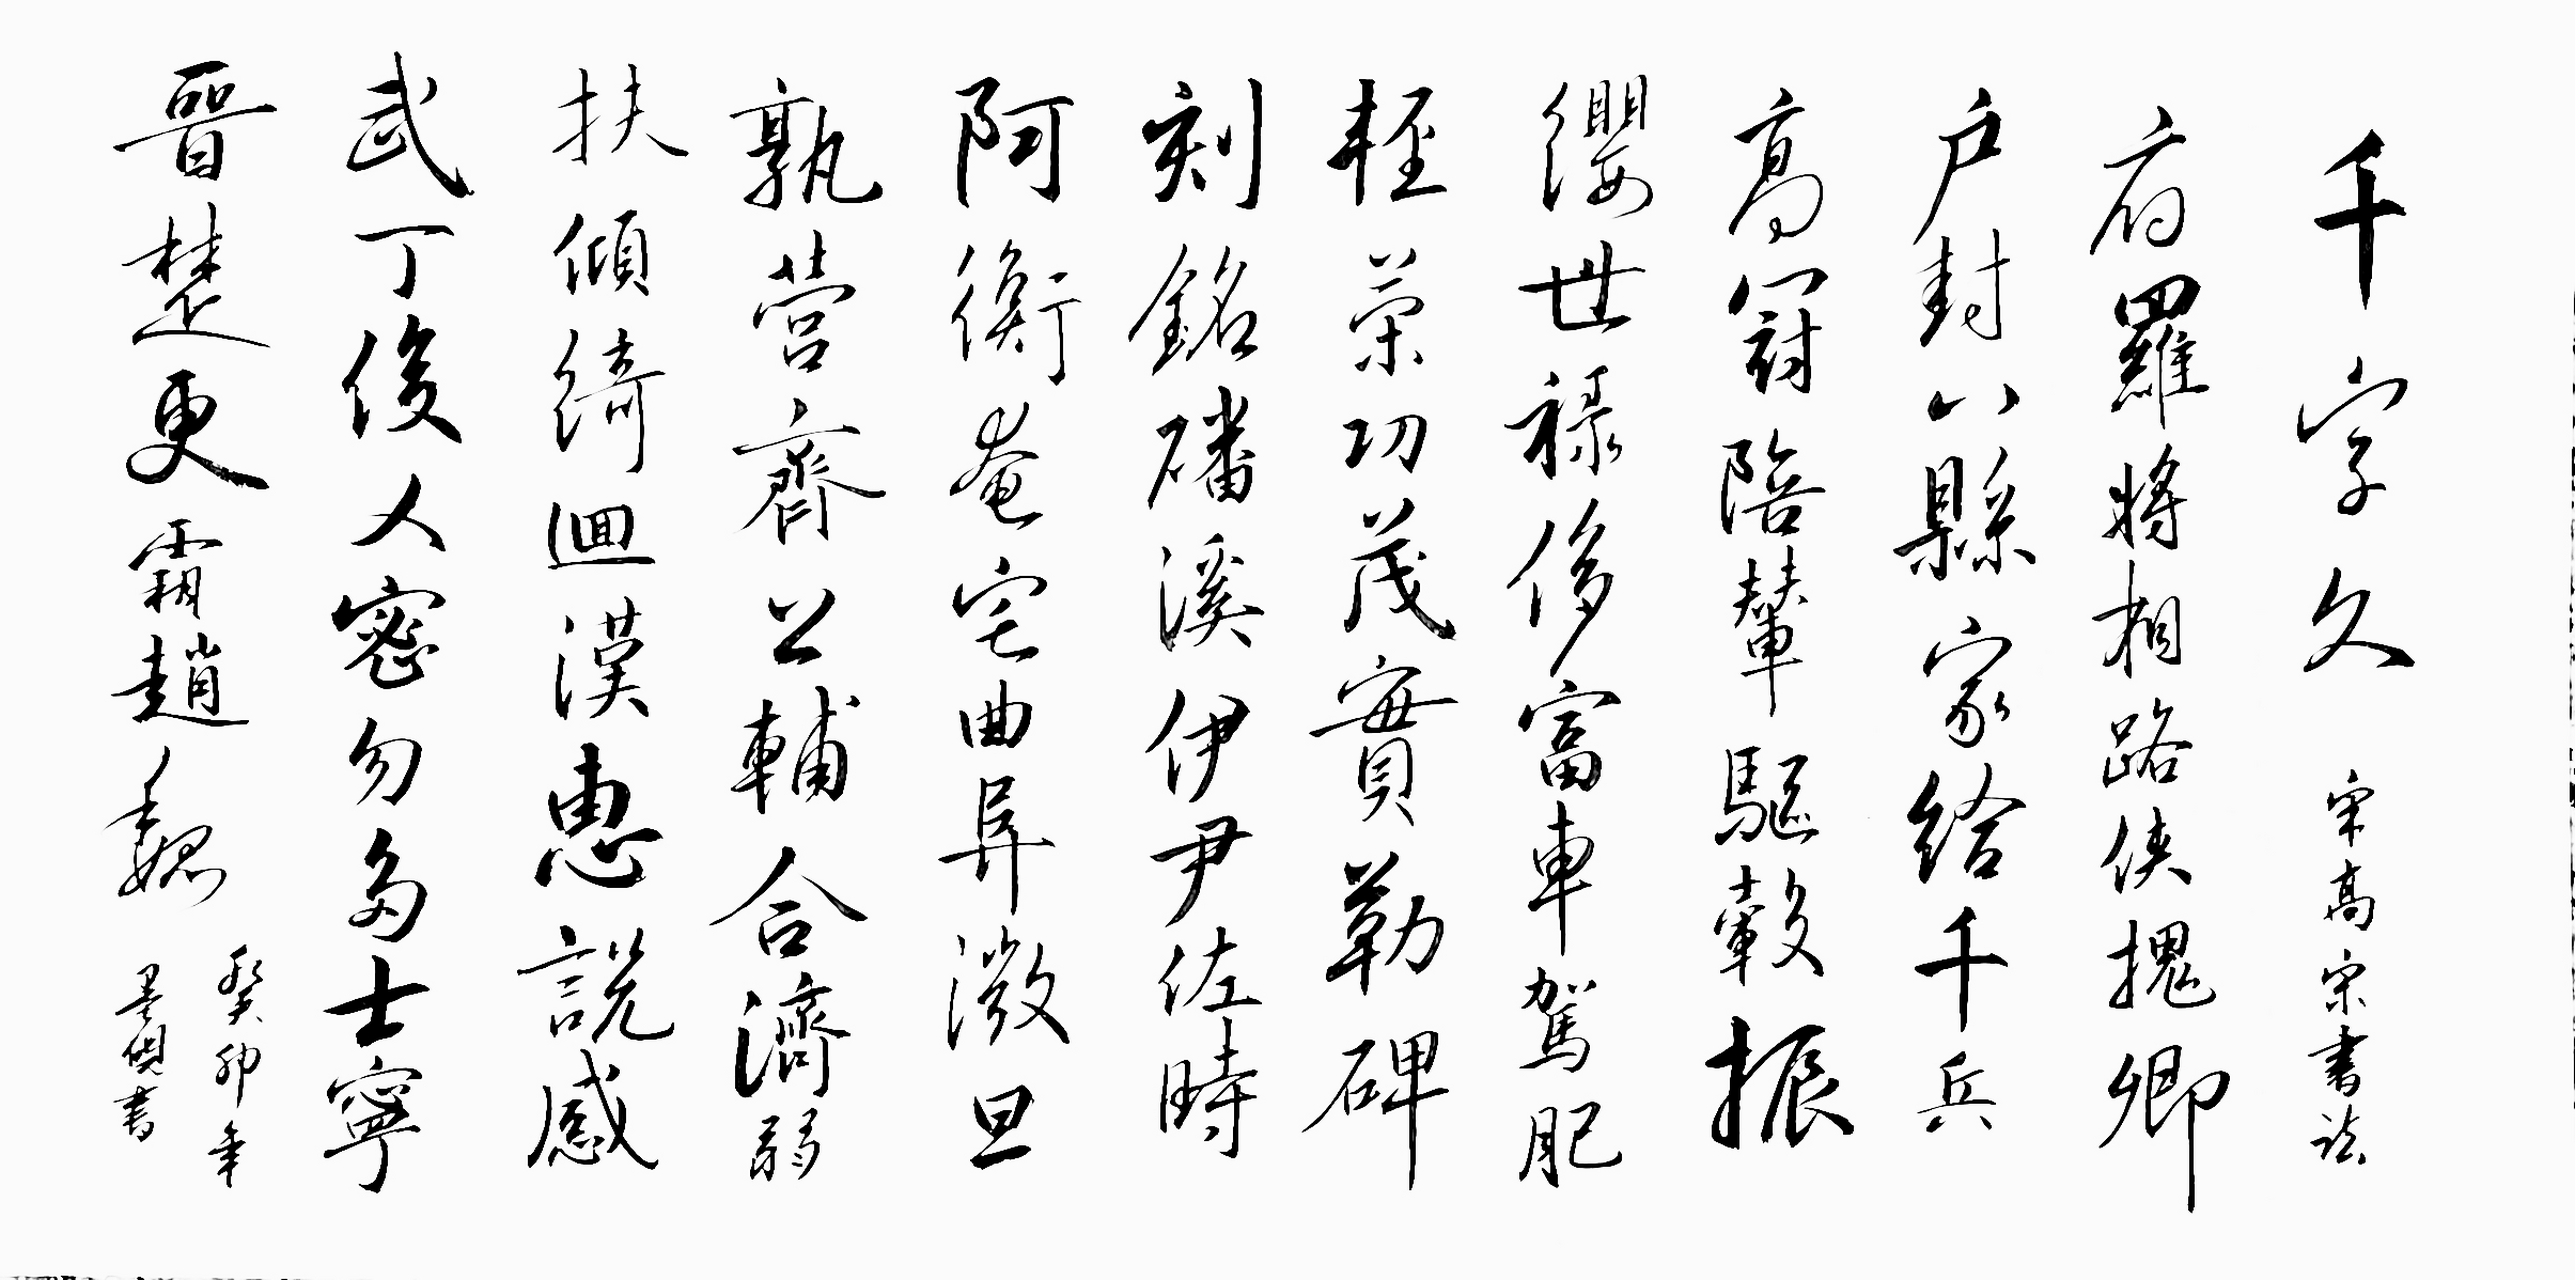 千字久 宋高宗書法
府羅將相路俠槐卿
戶封八縣家給千兵
高冠陪輦驅轂振
纓世祿侈富車駕肥
輕策功茂實勒碑
刻銘磻溪伊尹佐時
阿衡奄宅曲阜微旦
孰營齊公輔合濟弱
扶傾綺迴漢惠說感
武丁俊人密勿多士寧
晉楚更霸趙魏
癸卯年
書